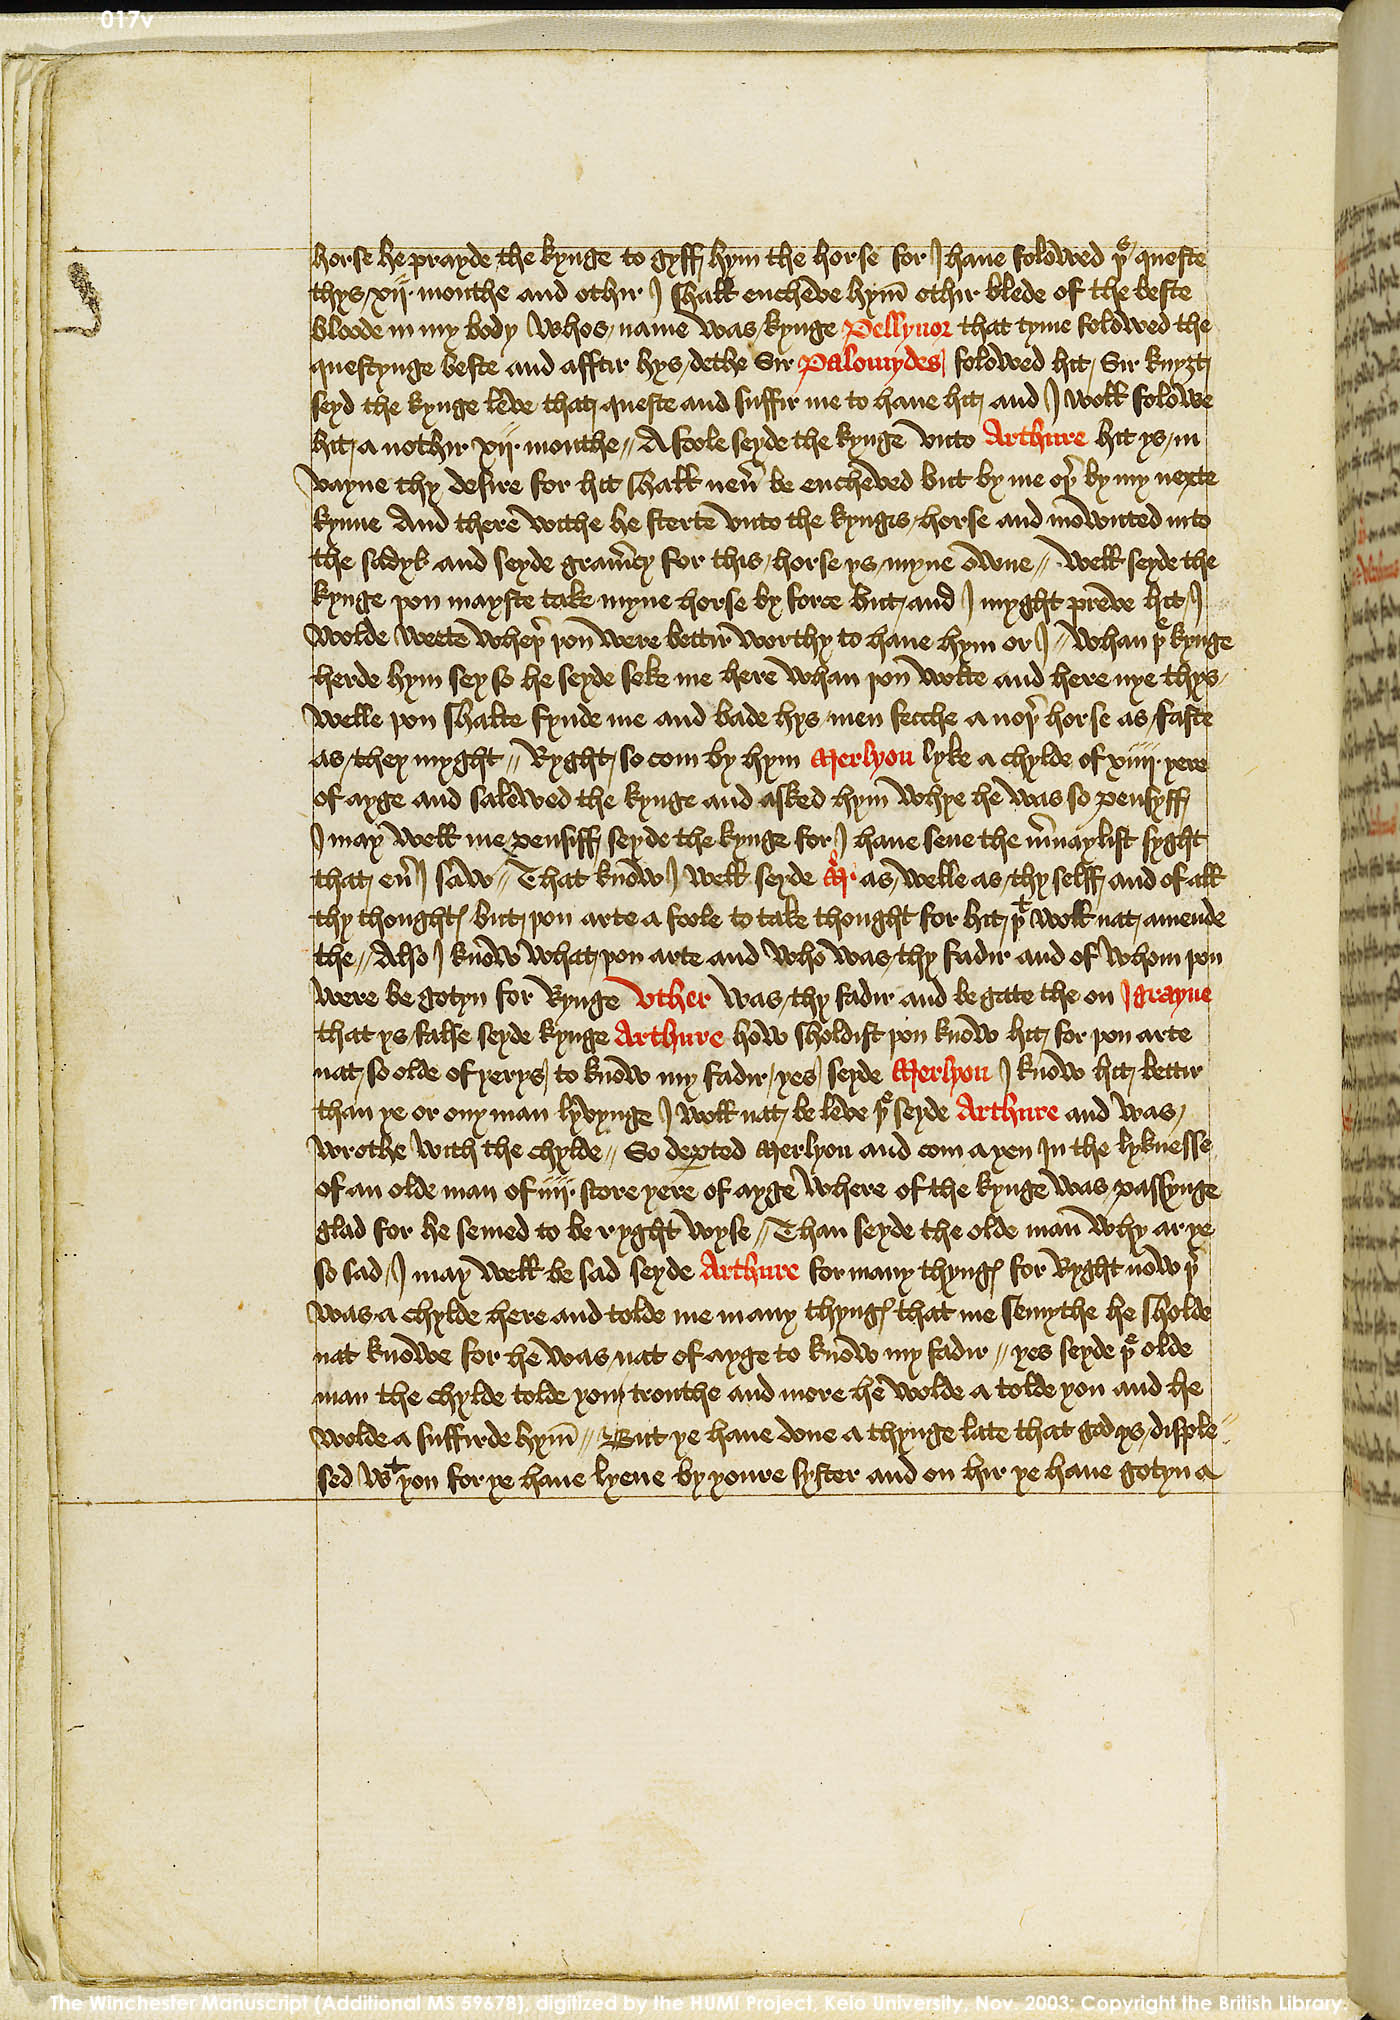 017v
horse he prayde the kynge to gyff hym the horse for I haue folowed þᵉ queste
thys xij monthe and othir I shall encheve hym othir blede of the beste
bloode in my body whos name was kynge Pellynor that tyme folowed the
questynge beste and afftir hys dethe Sir Palomydes folowed hit Sir knyȝt
seyd the kynge leve that queste and suffir me to haue hit and I woll folowe
hit a nothir xij monthe // A foole seyde the kynge vnto Arthure hit ys in
vayne thy desire for hit shall neu̅ be encheved but by me oþ̅ by my nexte
kynne And there withe he sterte vnto the kyngis horse and mownted in to
the sadyl and seyde gram̅cy for this horse ys myne owne // Well seyde the
kynge þou mayste take myne horse by force but and I myght preve hit I
wolde weete wheþ̅ þou were bettir worthy to haue hym or I // Whan þᵉ kynge
herde hym sey so he seyde seke me here whan þou wolte and here nye thys
welle þou shalte fynde me and bade hys men fecche a noþ̅ horse as faste
as they myght // Ryght so com by hym Merlyon lyke a chylde of xiiij yere
of ayge and salewed the kynge and asked hym whye he was so pensyff
I may well me pensiff seyde the kynge for I haue sene the m̅uaylist syght
that eu̅ I saw // That know I well seyde M̅ as welle as thy selff and of all
thy thoughtꝭ but þou arte a foole to take thought for hit þᵗ woll nat amende
the // Also I know what þou arte and who was thy fadir and of whom þou
were be gotyn for kynge Vther was thy fadir and be gate the on Igrayne
that ys false seyde kynge Arthure how sholdist þou know hit for þou arte
nat so olde of yerys to know my fadir / yes seyde Merlyon I know hit bettir
than ye or ony man lyvynge I woll nat be leve þᵉ seyde Arthure and was
wrothe with the chylde // So dep̱ted Merlyon and com ayen In the lyknesse
of an olde man of iiij score yere of ayge where of the kynge was passynge
glad for he semed to be ryght wyse // Than seyde the olde man why ar ye
so sad / I may well be sad seyde Arthure for many thyngꝭ for Ryght now þ̅
was a chylde here and tolde me many thyngꝭ that me semythe he sholde
nat knowe for he was nat of ayge to know my fadir // yes seyde þᵉ olde
man the chylde tolde you trouthe and more he wolde a tolde you and he
wolde a suffirde hym // But ye haue done a thynge late that god ys disple//
sed wᵗ you for ye haue lyene by youre syster and on hir ye haue gotyn a
The Winchester Manuscript (Additional MS 59678), digitized by the HUMI Project, Keio University, Nov. 2003; Copyright the British Library.